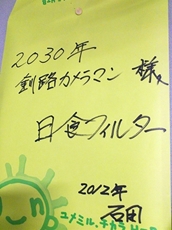 2030年
釧路カメラマン 様へ
日食フィルター
2012年
石田
ユメミル、チカラ